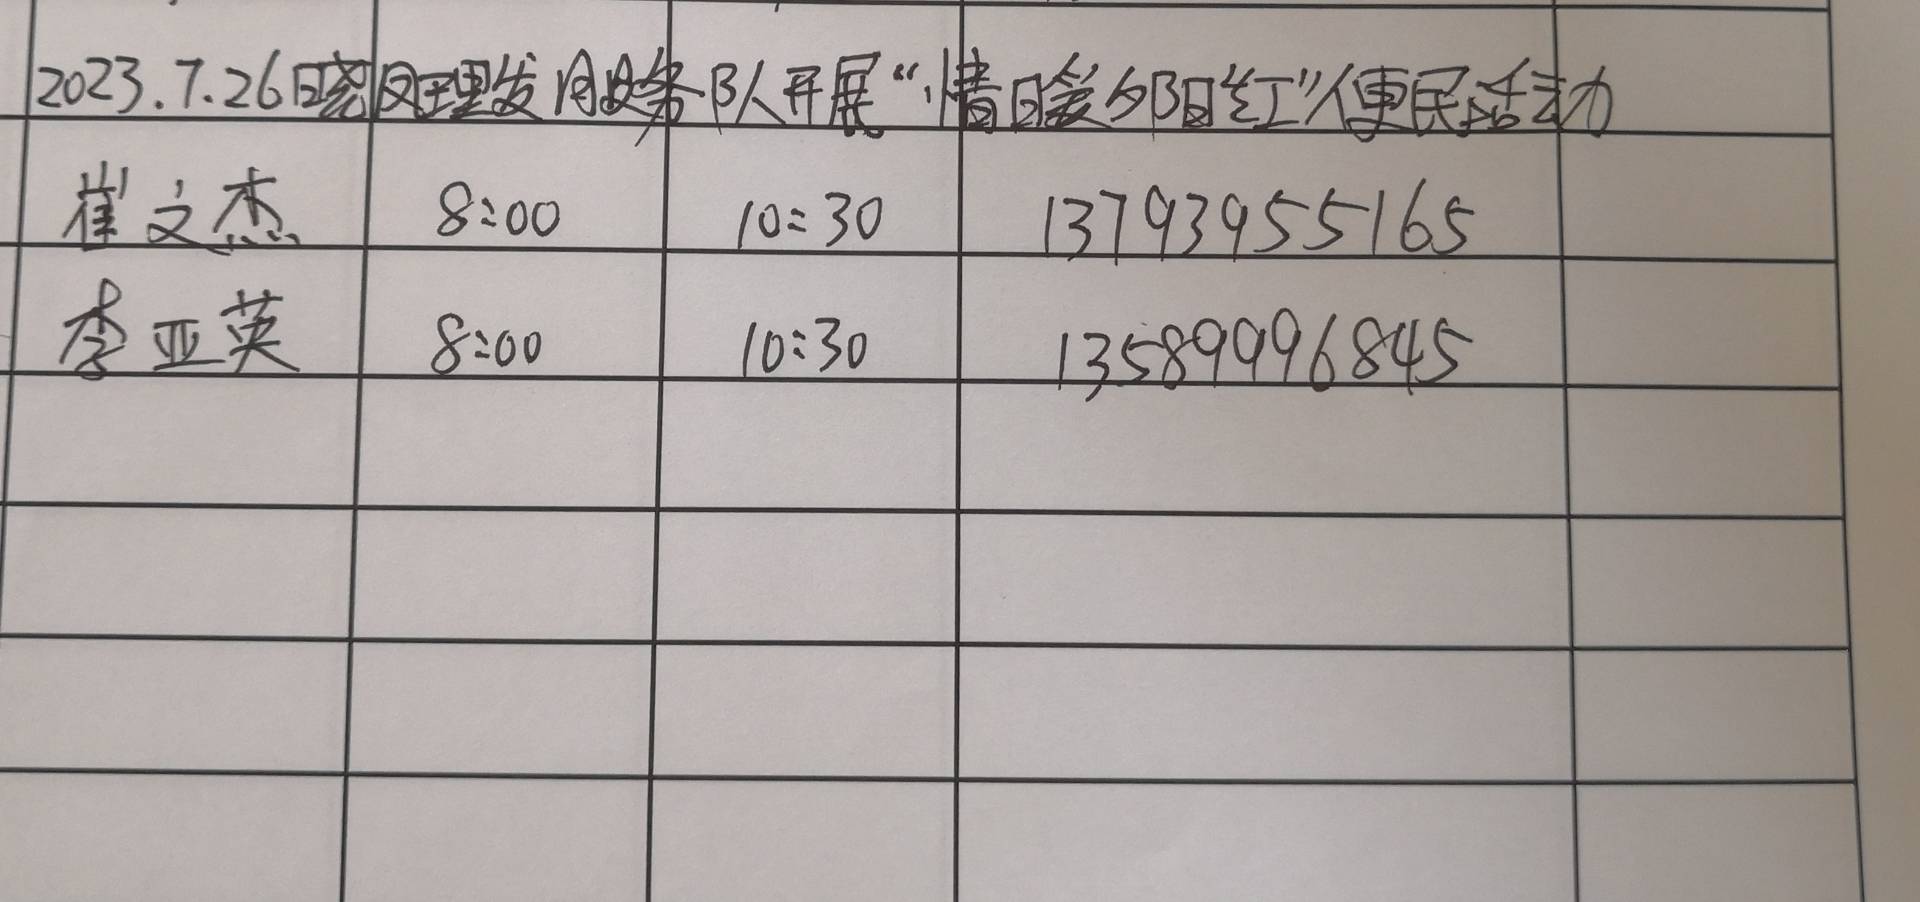 2023.7.26日晓风理发服务队开展“情暖夕阳红”便民活动
崔文杰 8:00 10:30 13793955165
李亚英 8:00 10:30 13589996845